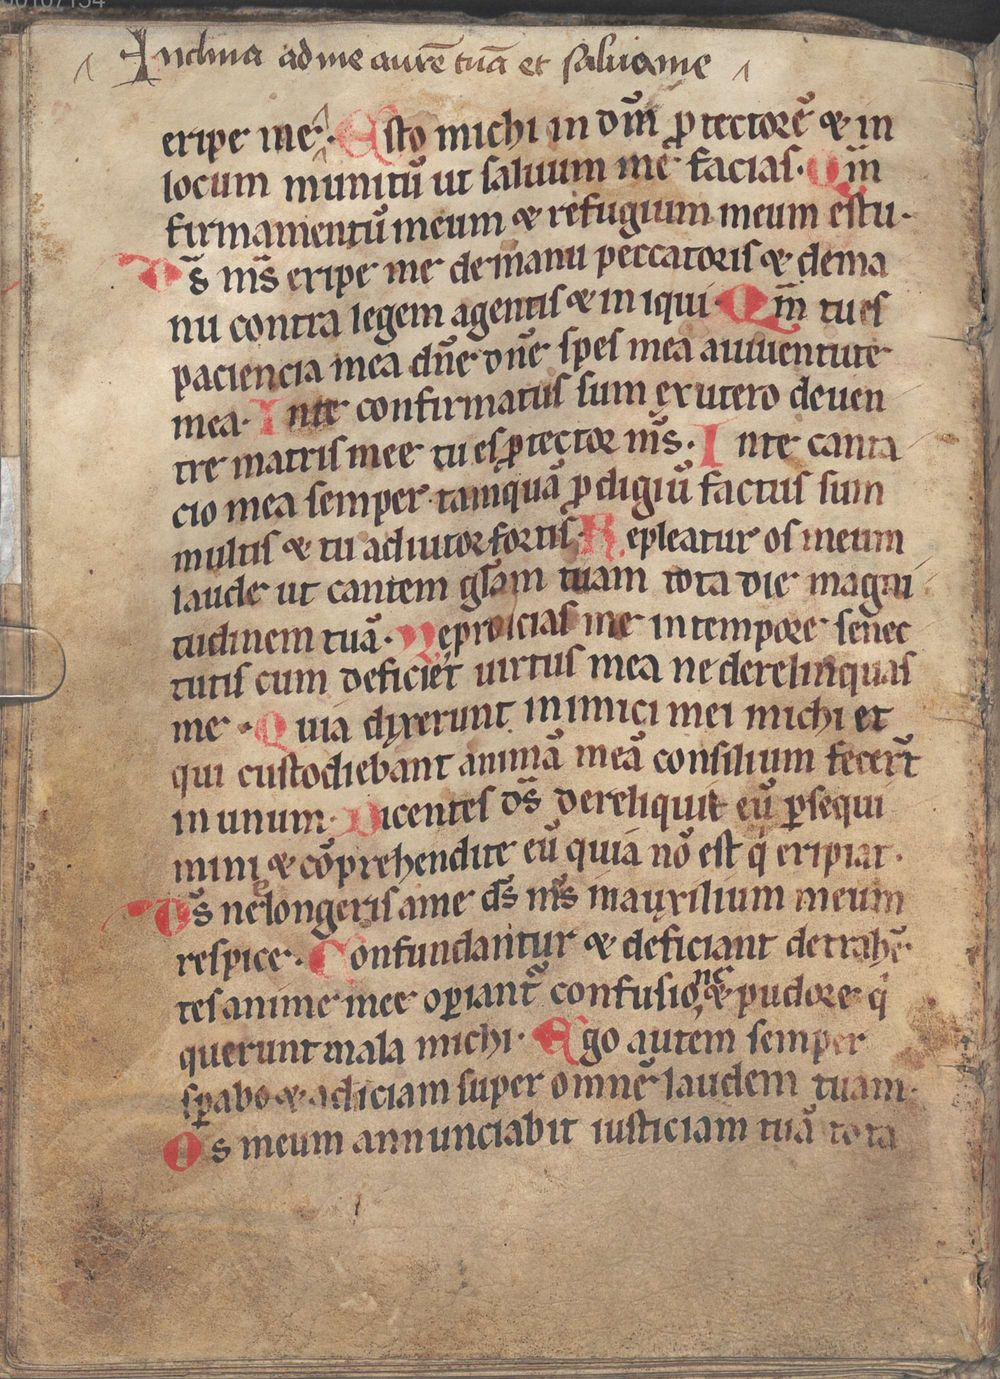 Inclina ad me aurē tuā et salua me
eripe me. Esto michi in dm̄ ꝓtectorē & in
locum munitū ut saluum me facias. Qm̄
firmamentū meum & refugium meum es tu.
Ds̄ ms̄ eripe me de manu peccatoris & de ma
nu contra legem agentis & iniqui. Qm̄ tu es
paciencia mea dn̄e dn̄e spes mea a iuuentute
mea. In te confirmatus sum ex utero de uen
tre matris mee tu es ꝓtector ms̄. In te canta
cio mea semper tamquā ꝓdigiū factus sum
multis & tu adiutor fortis. Repleatur os meum
laude ut cantem gl̄am tuam tota die magni
tudinem tuā. Ne proicias me in tempore senec
tutis cum deficiet uirtus mea ne derelinquas
me. Quia dixerunt inimici mei michi et
qui custodiebant animā meā consilium fecer̄t
in unum. Dicentes ds̄ dereliquit eū ꝑsequi
mini & cōprehendite eū quia nō est q̇ eripiat.
Ds̄ ne longeris a me ds̄ ms̄ in auxilium meum
respice. Confundantur & deficiant detrahē
tes anime mee oꝑiant᷑ confusione & pudore q̇
querunt mala michi. Ego autem semper
sꝑabo & adiciam super omnē laudem tuam.
Os meum annunciabit iusticiam tuā tota